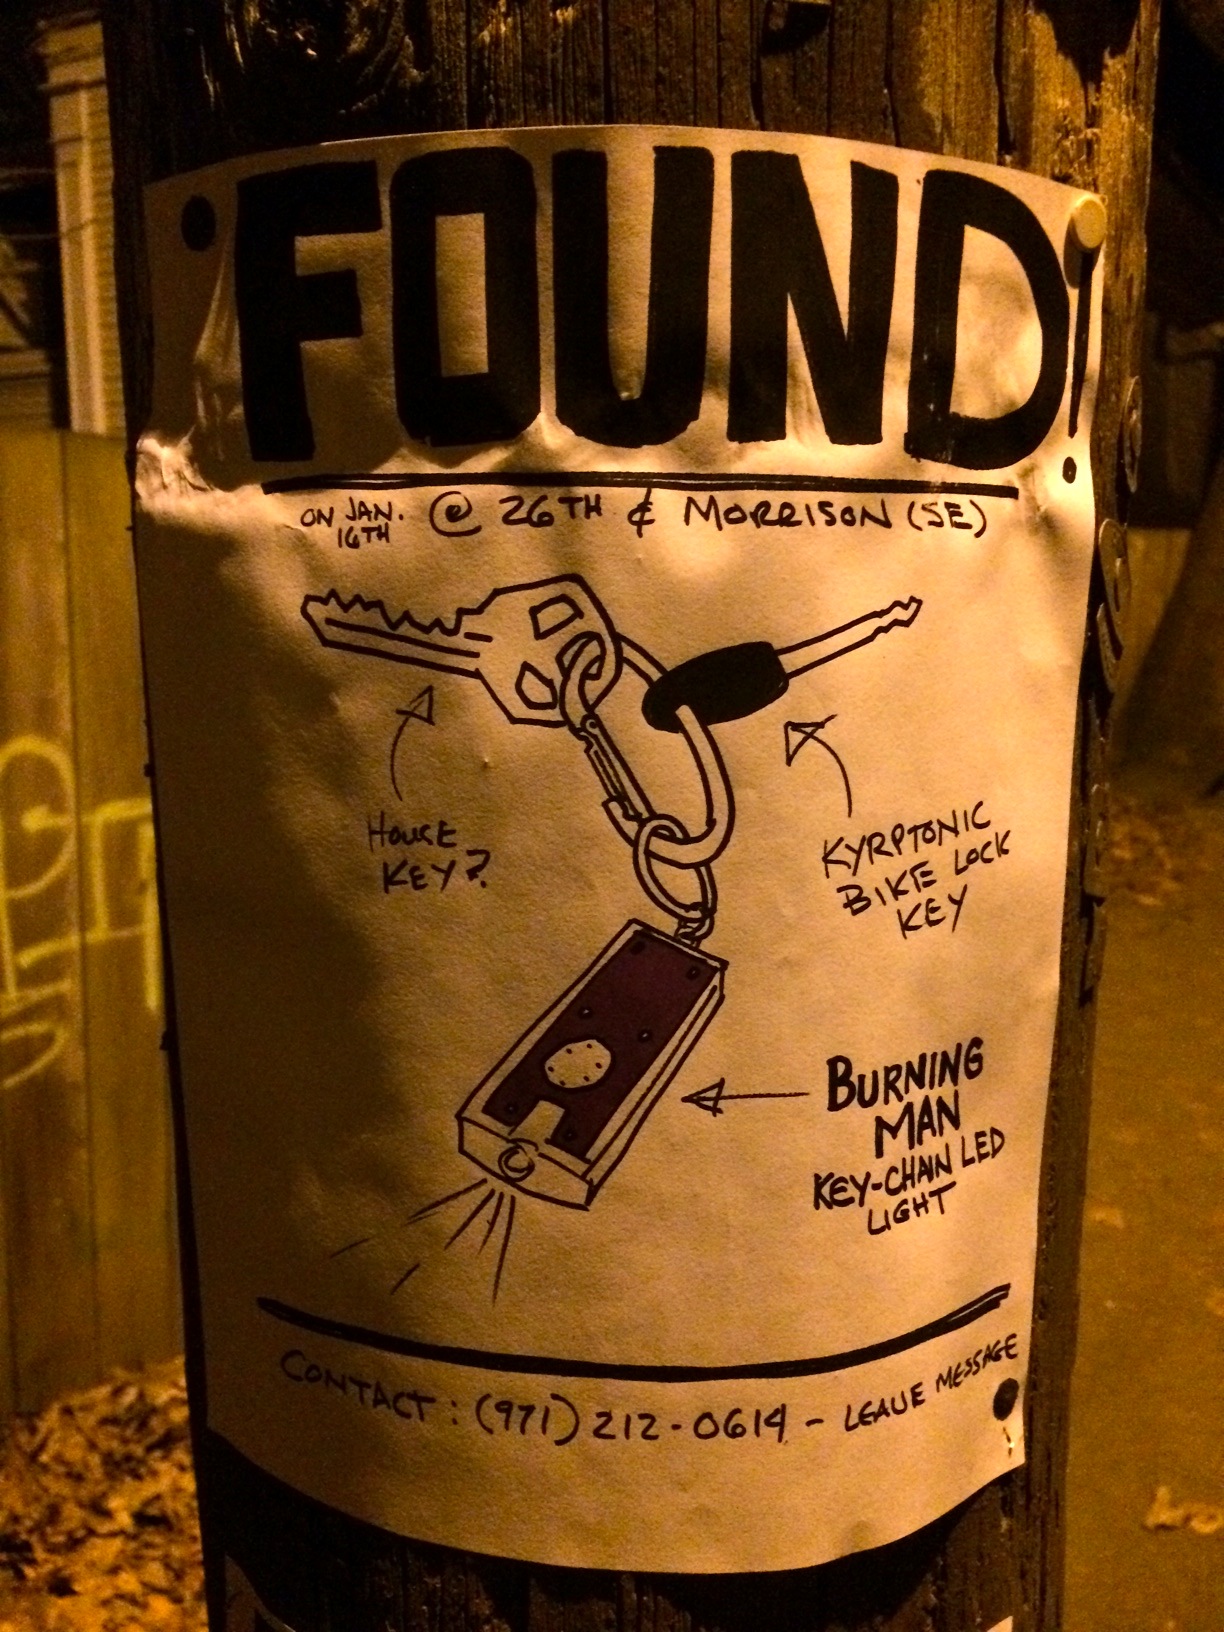 FOUND!
ON JAN. 16TH @ 26TH & MORRISON (SE)
HOUSE
KEY?
KYRPTONIC
BIKE LOCK
KEY
BURNING
MAN
KEY-CHAIN LED
LIGHT
CONTACT: (971) 212-0614 - LEAVE MESSAGE